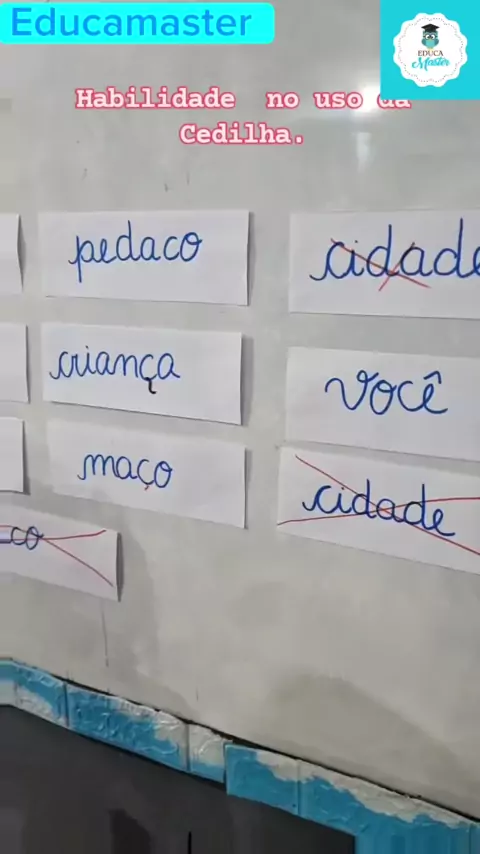 Educamaster
EDUCA
Master
Habilidade no uso da
Cedilha.
pedaco
cidade
criança
você
maço
cidade
co